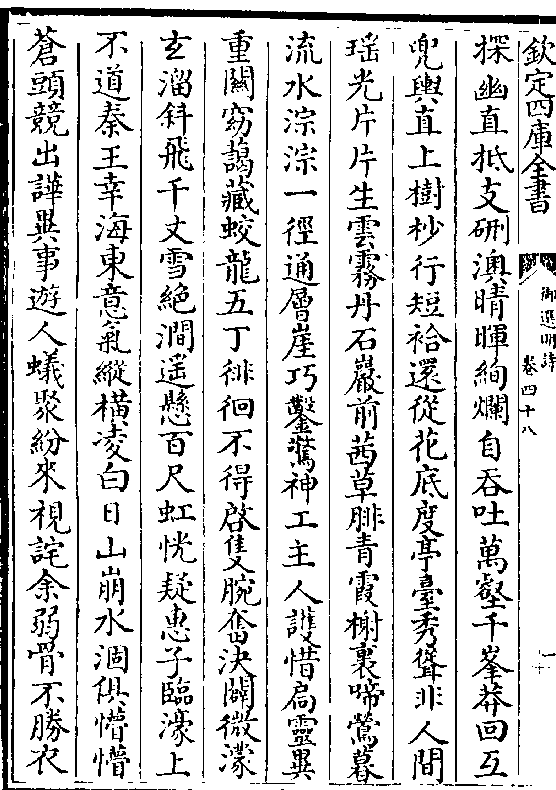 欽定四庫全書
御選明詩
卷四十八
探幽直抵支硎澳晴暉絢爛自吞吐萬壑千峯莽回互
兜輿直上樹杪行短袷還從花底度亭臺秀聳非人間
瑶光片片生雲霧丹石巖前茜草腓青霞榭裏啼鶯暮
流水淙淙一徑通層崖巧鑿驚神工主人護惜扃靈異
重關窈藹藏蛟龍五丁徘徊不得啓隻腕奮決闢微濛
玄溜斜飛千丈雪絶澗遥懸百尺虹恍疑惠子臨濠上
不道秦王幸海東意氣縱横凌白日山崩水涸俱懵懵
蒼頭競出譁異事遊人蟻聚紛來視詫余弱骨不勝衣